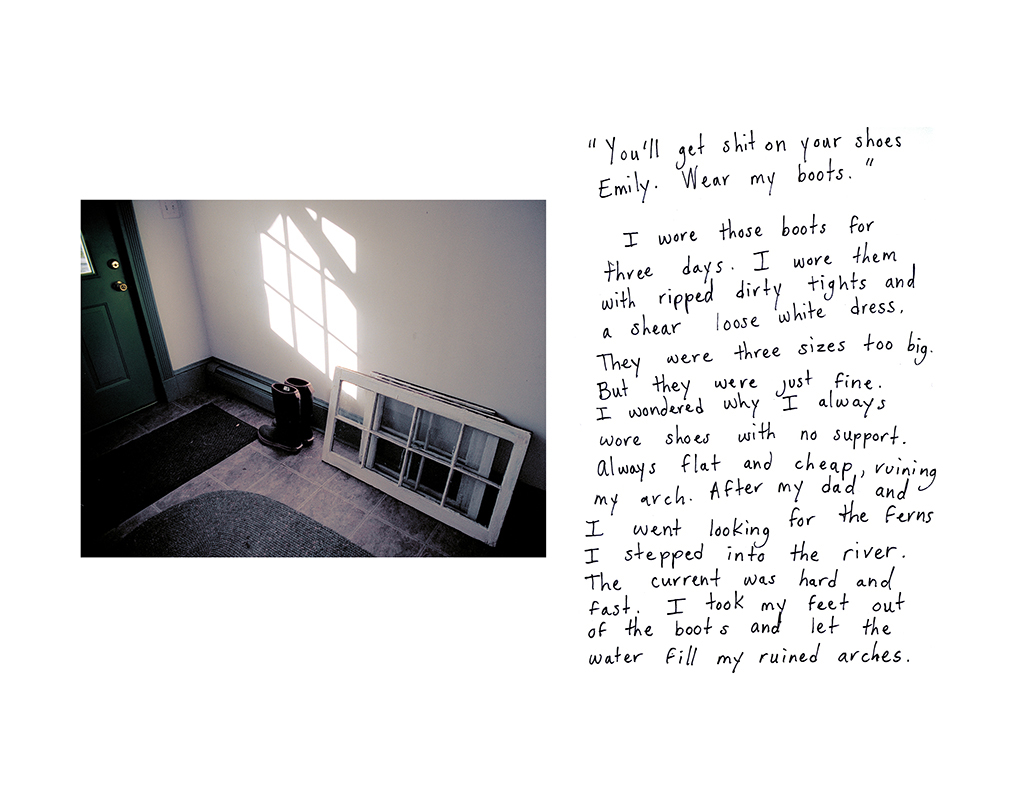 "You'll get shit on your shoes
Emily. Wear my boots."
I wore those boots for
three days. I wore them
with ripped dirty tights and
a shear loose white dress.
They were three sizes too big.
But they were just fine.
I wondered why I always
wore shoes with no support.
Always flat and cheap, ruining
my arch. After my dad and
I went looking for the ferns
I stepped into the river.
The current was hard and
fast. I took my feet out
of the boots and let the
water fill my ruined arches.